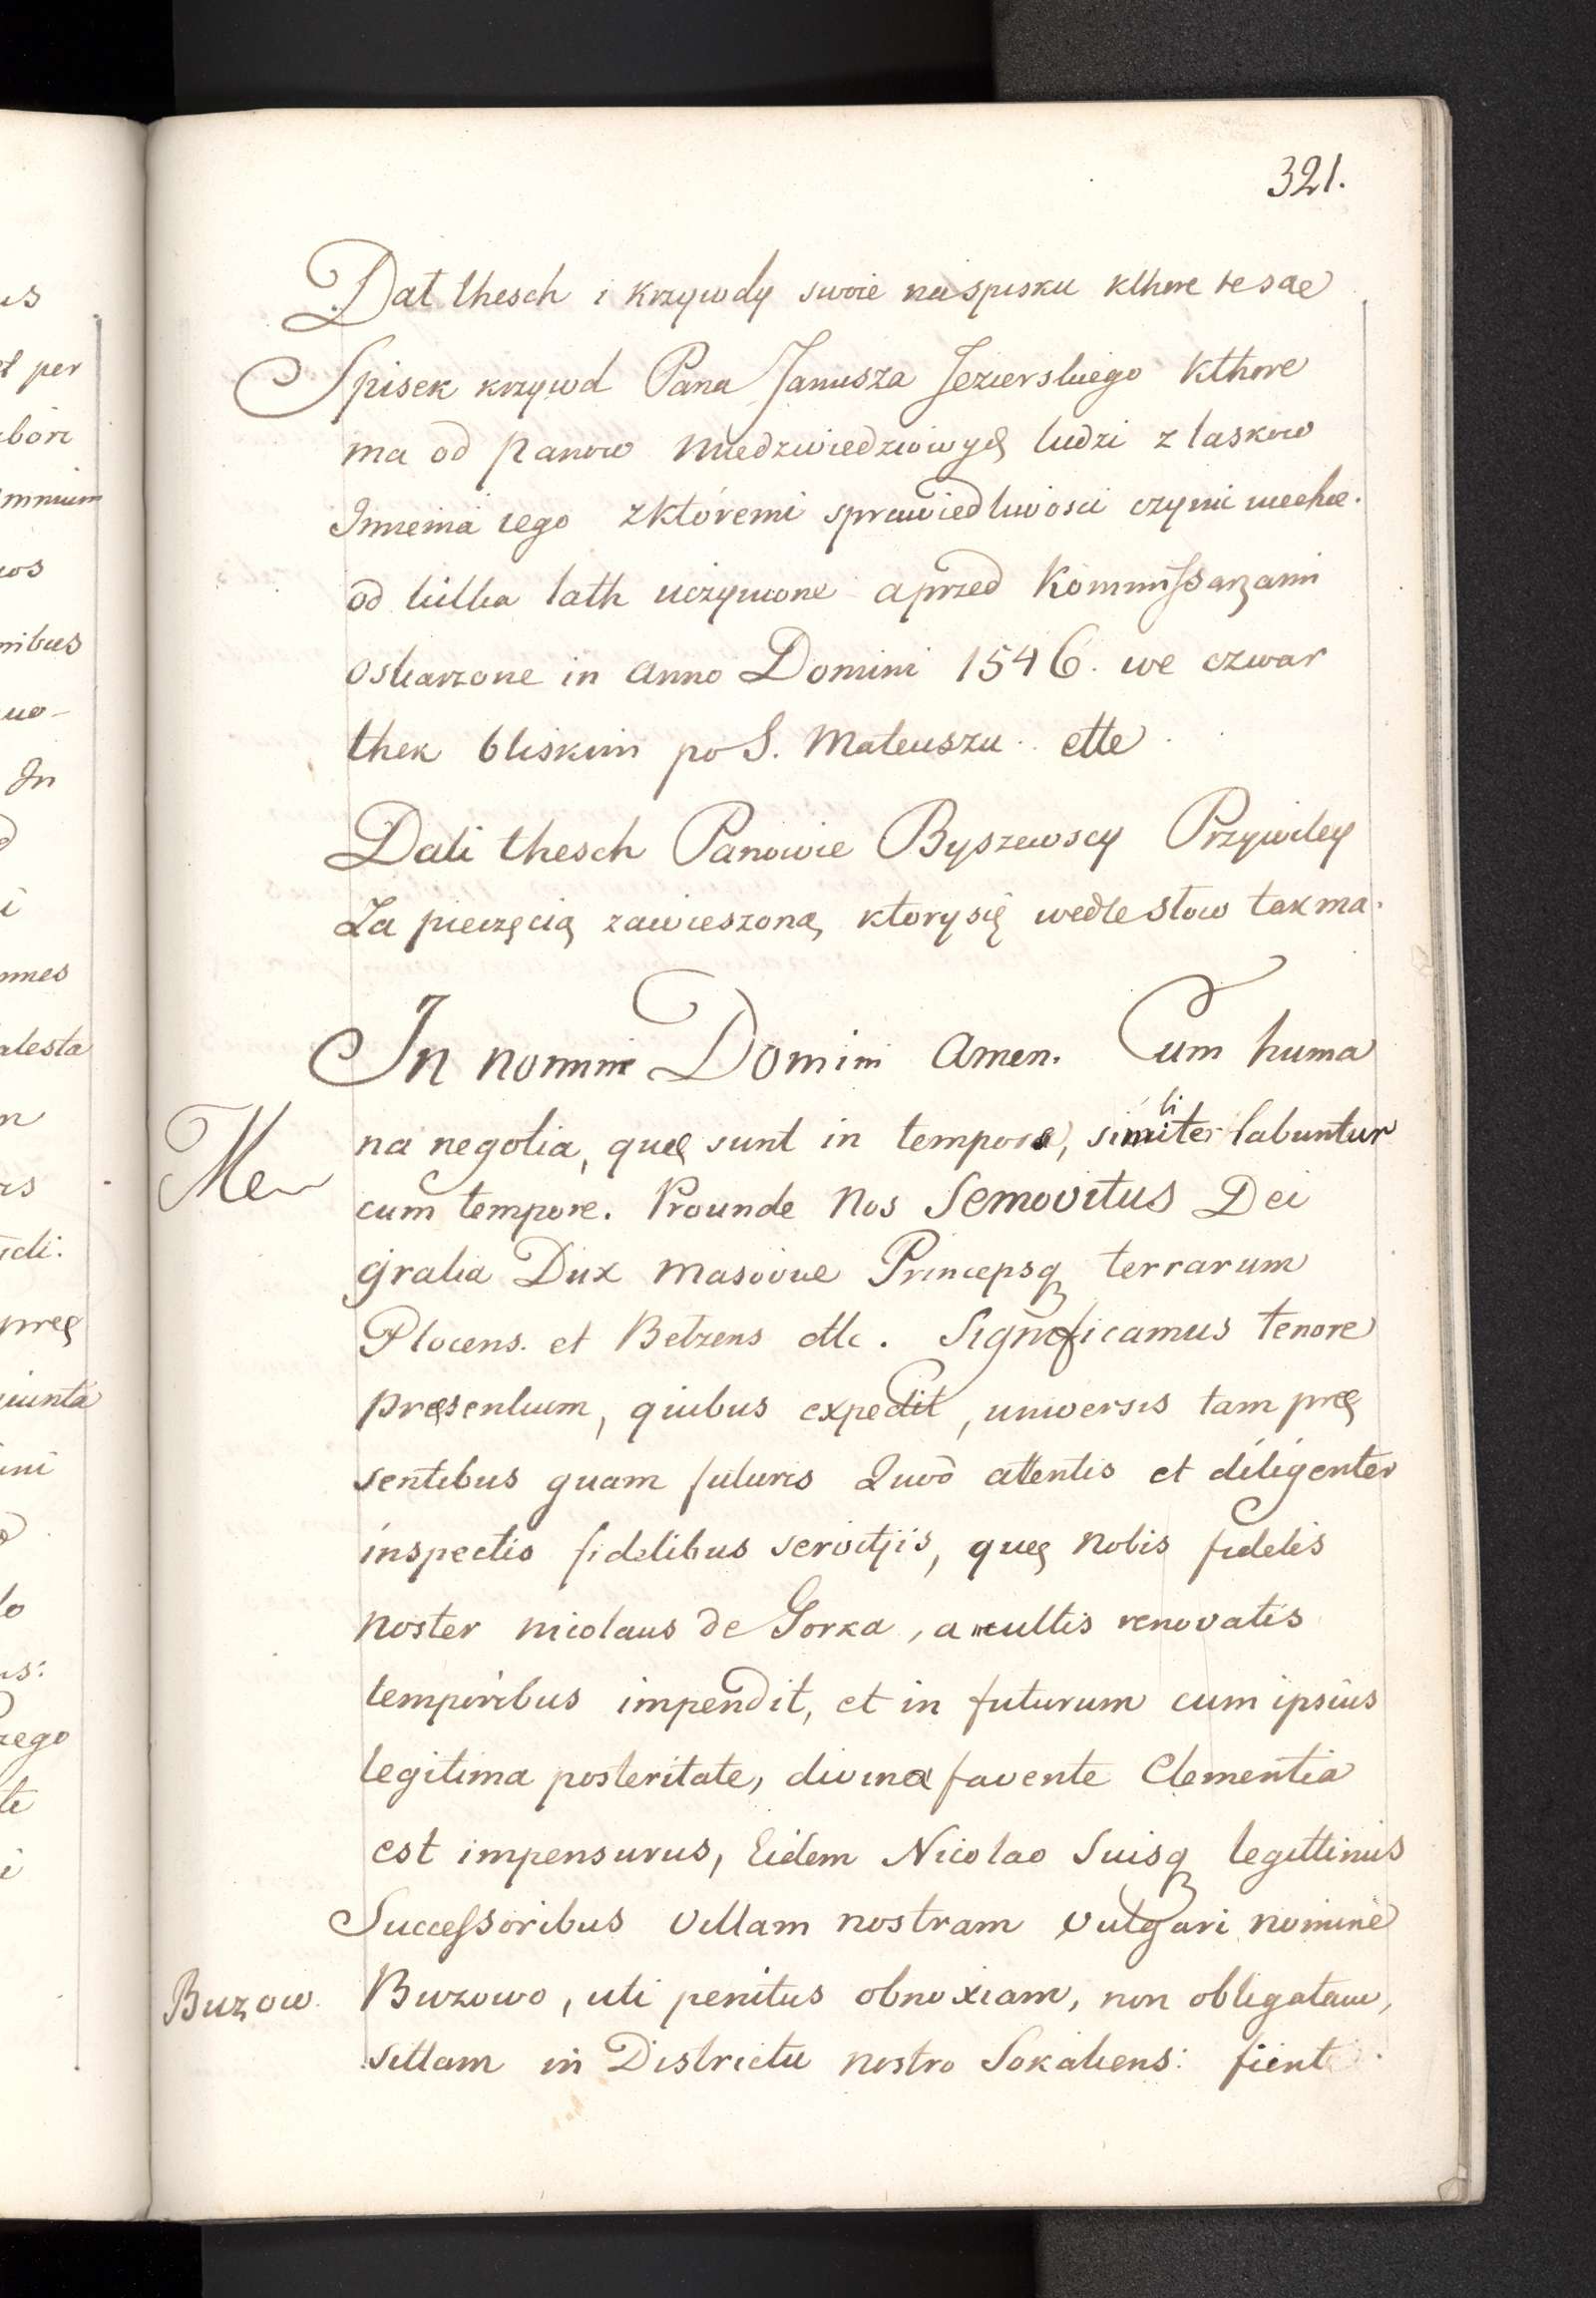 321.
Dał thesch i krzywdy swoie na spisku kthore te sae
Spisek krzywd Pana Janusza Jezierskiego kthore
ma od Panow Niedzwiedziowych ludzi z laskow
Innema iego zktóremi sprawiedliwosci czynić niechce.
od kilka lath uczynione a przed Kommissarzami
oskarzone in anno Domini 1546. we czwar
thek bliskim po S. Mateuszu ette
Dali thesch Panowie Byszewscy Przywiley
Za pieczęcią zawieszoną, ktory się wedle słow tak ma.
In nomine Domini Amen. Cum huma
na negotia, quę sunt in tempore, similiter labuntur
Me
cum tempore. Prounde Nos Semovitus Dei
gratia Dux Masovie Princepsq terrarum
Plocens. et Belzens etc. Significamus tenore
pręsentium, quibus expedit, universis tam prę
sentibus quam futuris Quod attentis et diligenter
inspectis fidelibus servitjis, quę nobis fidelis
noster Nicolaus de Gorka, a multis renovatis
temporibus impendit, et in futurum cum ipsius
legitima posteritate, divina favente Clementia
est impensurus, Eidem Nicolao Suisq legittimis
Successoribus Villam nostram vulgari nomine
Buzow. Buzowo, uti penitus obnoxiam, non obligatam,
sittam in Districtu nostro Sokaliens: sient
us
et per
mnium
nos
nibus
In
mnes
n
prę
iunta
ini
us:
te
i